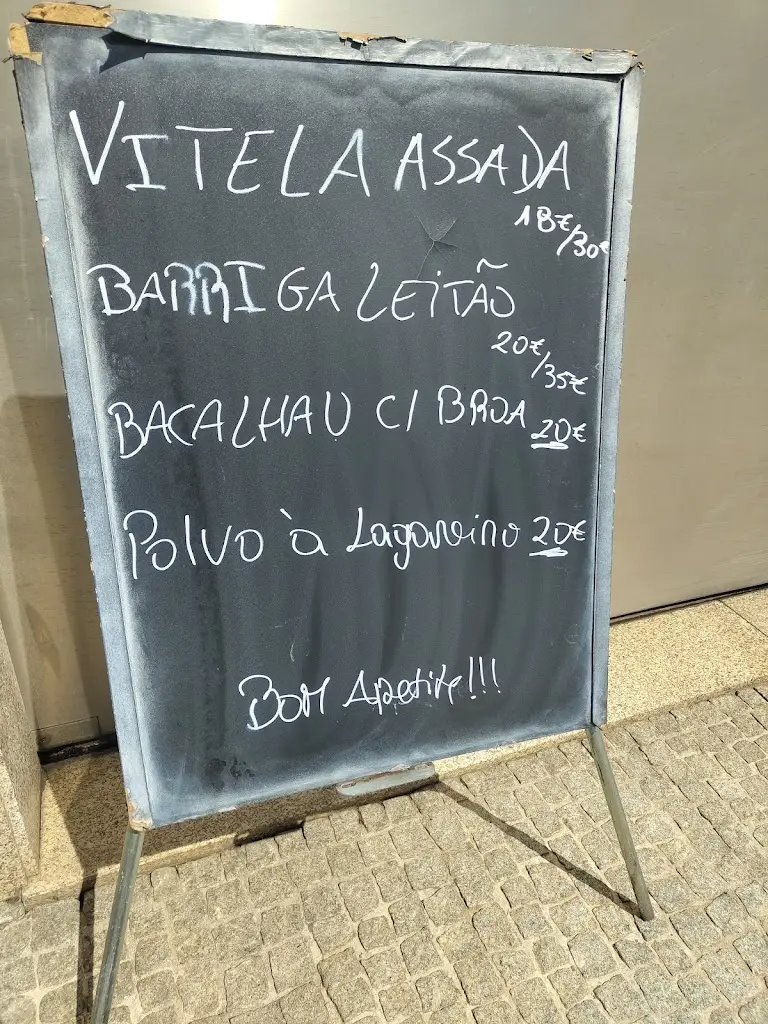 VITELA ASSADA
18€/30€
BARRIGA LEITÃO
20€/35€
BACALHAU C/ BROA 20€
Polvo à Lagareiro 20€
Bom Apetite!!!